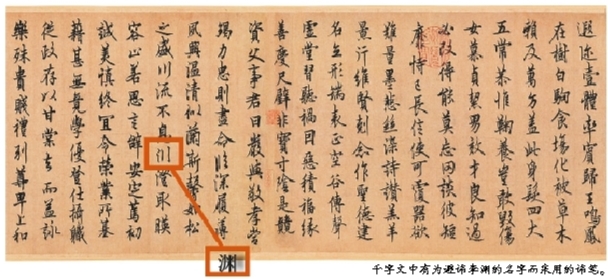 遐迩壹體率賓歸王鳴鳳
在樹白駒食場化被草木
賴及萬方盖此身髮四大
五常恭惟鞠養豈敢毀傷
女慕貞絜男效才良知過
必改得能莫忘罔談彼短
靡恃己長信使可覆器欲
難量墨悲絲染詩讚羔羊
景行維賢剋念作聖德建
名立形端表正空谷傳聲
虛堂習聽禍因惡積福緣
善慶尺璧非寶寸陰是競
資父事君曰嚴與敬孝當
竭力忠則盡命臨深履薄
夙興溫清似蘭斯馨如松
之盛川流不息渊澄取暎
容止若思言辭安定篤初
誠美慎終宜令榮業所基
籍甚無竟學優登仕攝職
從政存以甘棠去而益詠
樂殊貴賤禮別尊卑上和
渊
千字文中有为避讳李渊的名字而采用的讳笔。